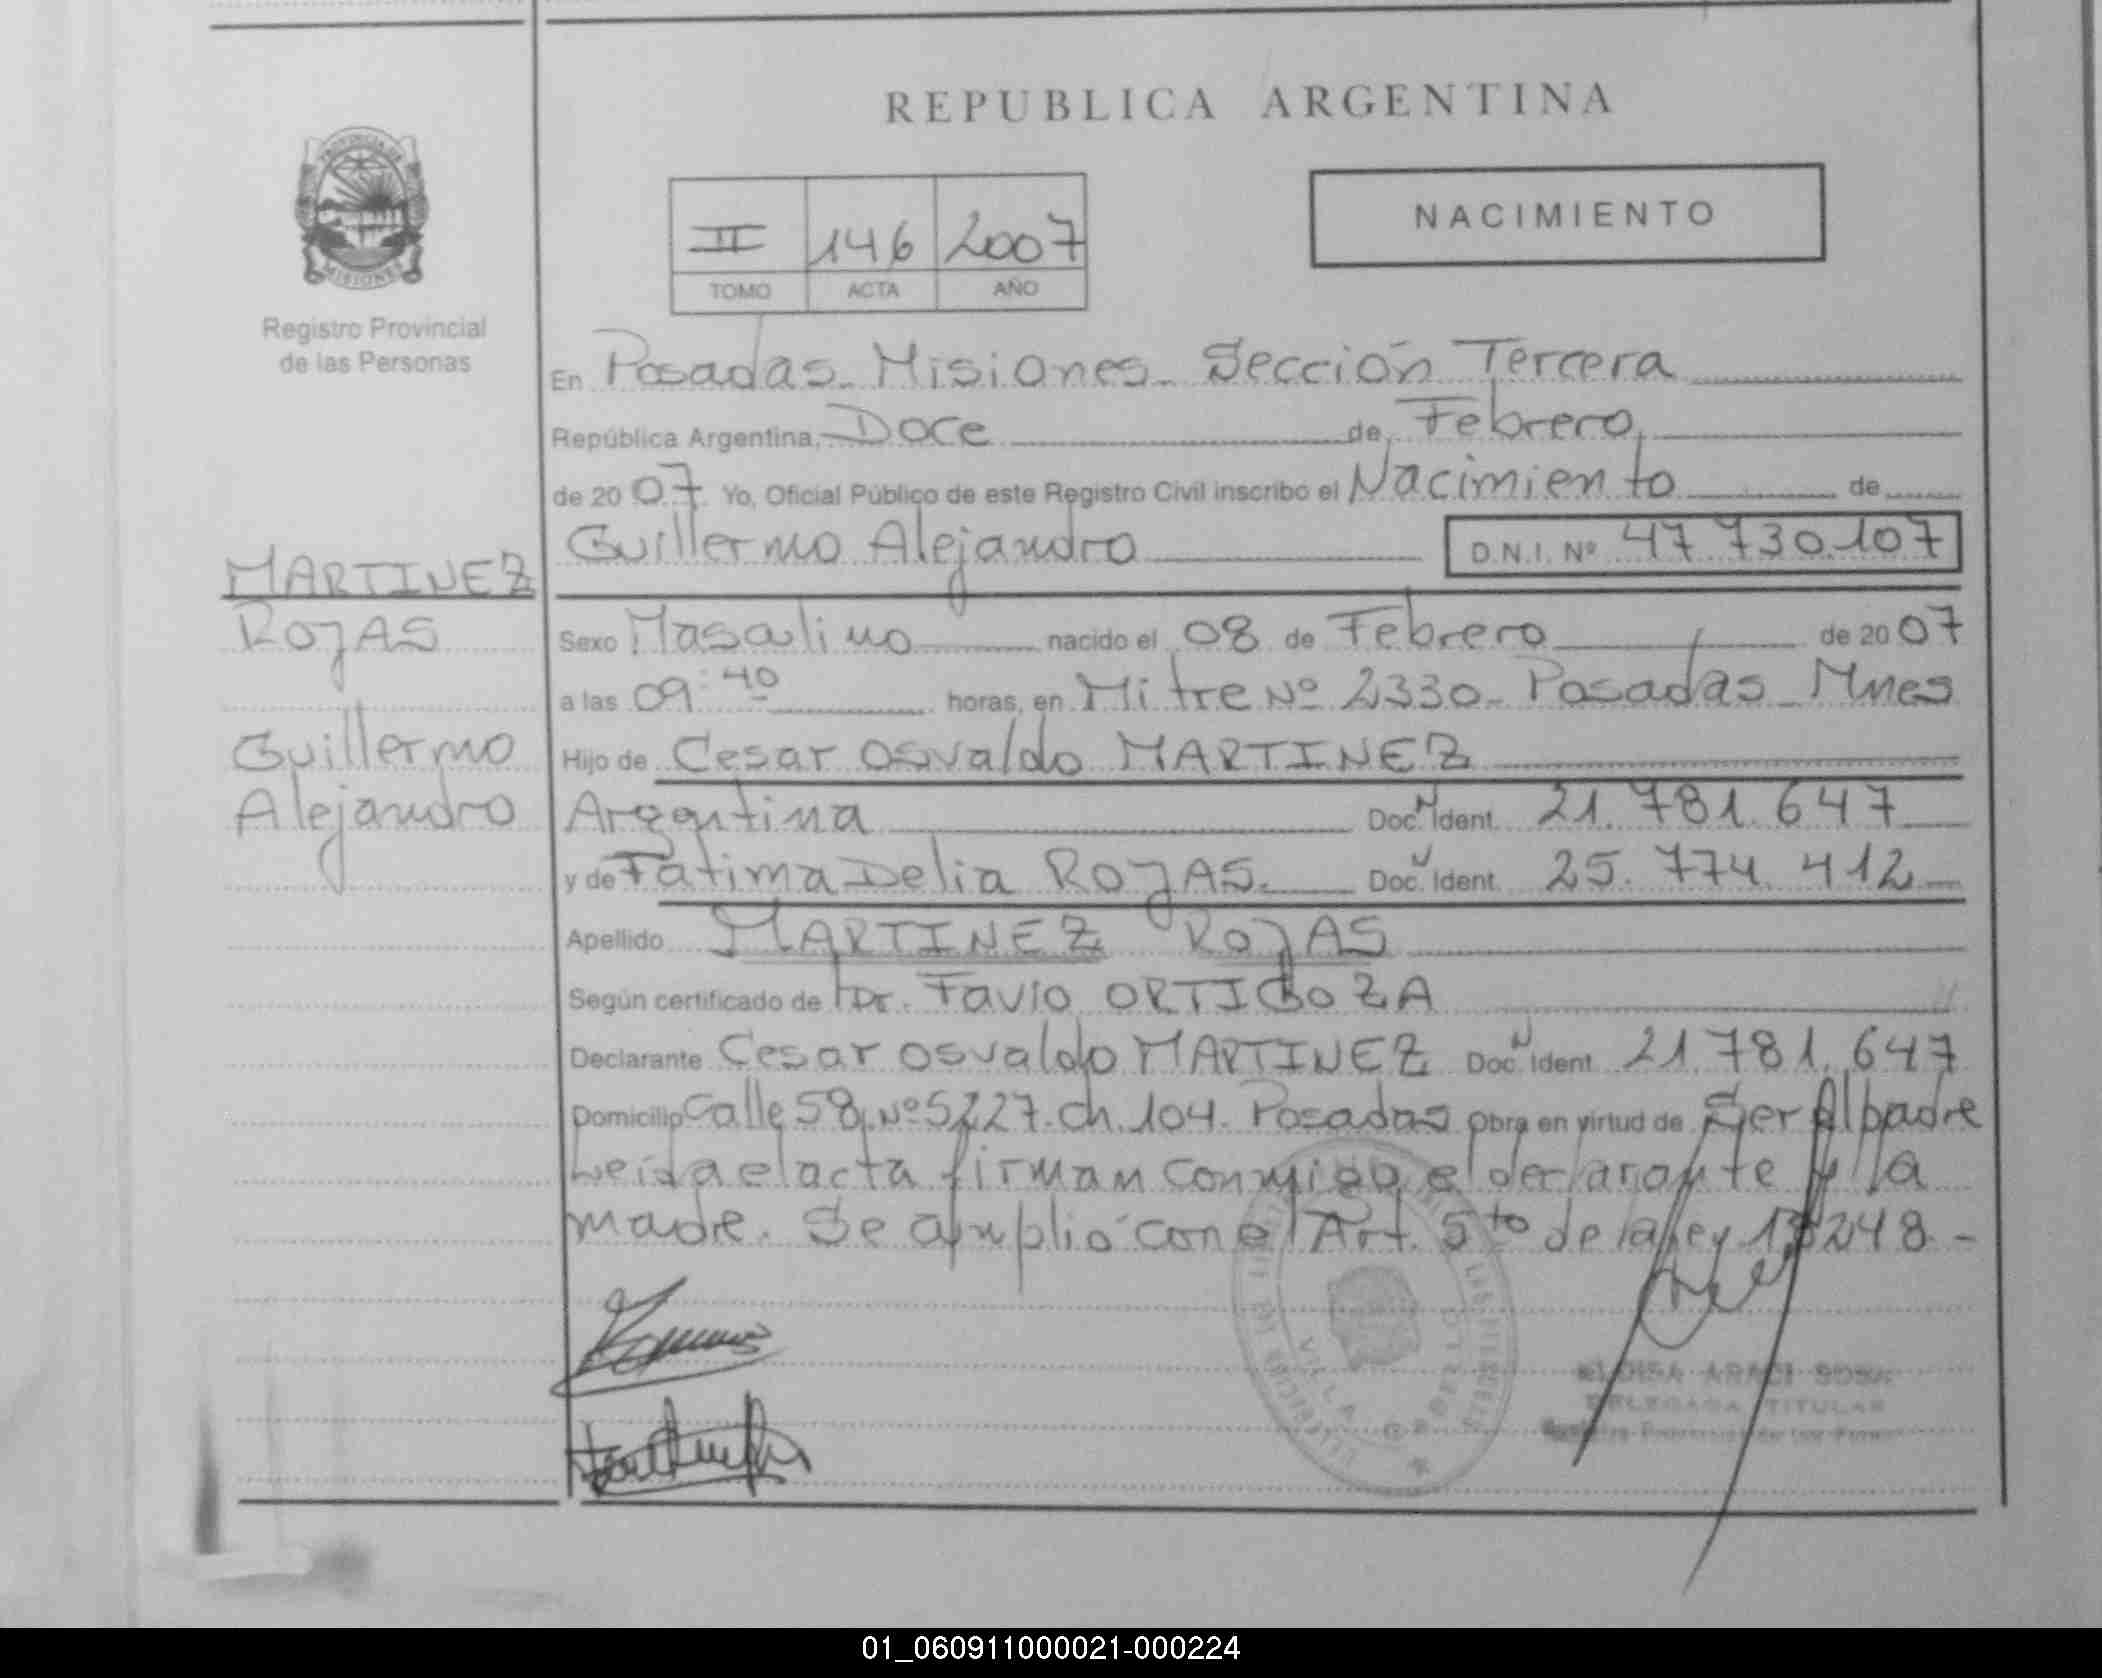 REPUBLICA ARGENTINA
PROVINCIA DE
MISIONES
Registro Provincial
de las Personas
II 146 2007
TOMO ACTA AÑO
NACIMIENTO
En Posadas - Misiones - Sección Tercera
República Argentina, Doce de Febrero
de 2007. Yo, Oficial Público de este Registro Civil inscribo el Nacimiento de
Guillermo Alejandro D.N.I. Nº 47.730.107
MARTINEZ
ROJAS
Guillermo
Alejandro
Sexo Masculino nacido el 08 de Febrero de 2007
a las 09:40 horas, en Mitre Nº 2330 - Posadas - Mnes
Hijo de Cesar Osvaldo MARTINEZ
Argentina Doc. N Ident. 21.781.647
y de Fatima Delia ROJAS. Doc. N Ident. 25.774.412
Apellido MARTINEZ ROJAS
Según certificado de Dr. Favio ORTIGOZA
Declarante Cesar Osvaldo MARTINEZ Doc. N Ident. 21.781.647
Domicilio Calle 58 Nº 5227. Ch. 104. Posadas Obra en virtud de Ser el padre
Leida el acta firman conmigo el declarante y la
madre. Se amplió con el Art. 5to de la ley 18248 -
VILLA CABELLO
ELOISA ARACI SOSA
DELEGADA TITULAR
01_060911000021-000224